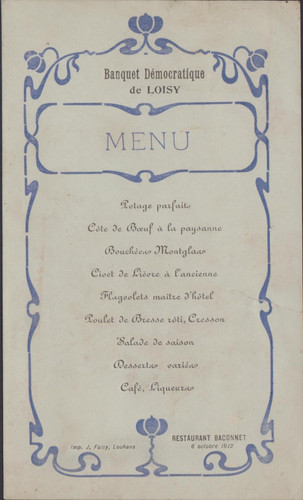 Banquet Démocratique
de LOISY
MENU
Potage parfait
Côte de Bœuf à la paysanne
Bouchées Montglas
Civet de Lièvre à l'ancienne
Flageolets maître d'hôtel
Poulet de Bresse rôti, Cresson
Salade de saison
Desserts variés
Café, Liqueurs
RESTAURANT BACONNET
6 octobre 1912
Imp. J. Failly, Louhans